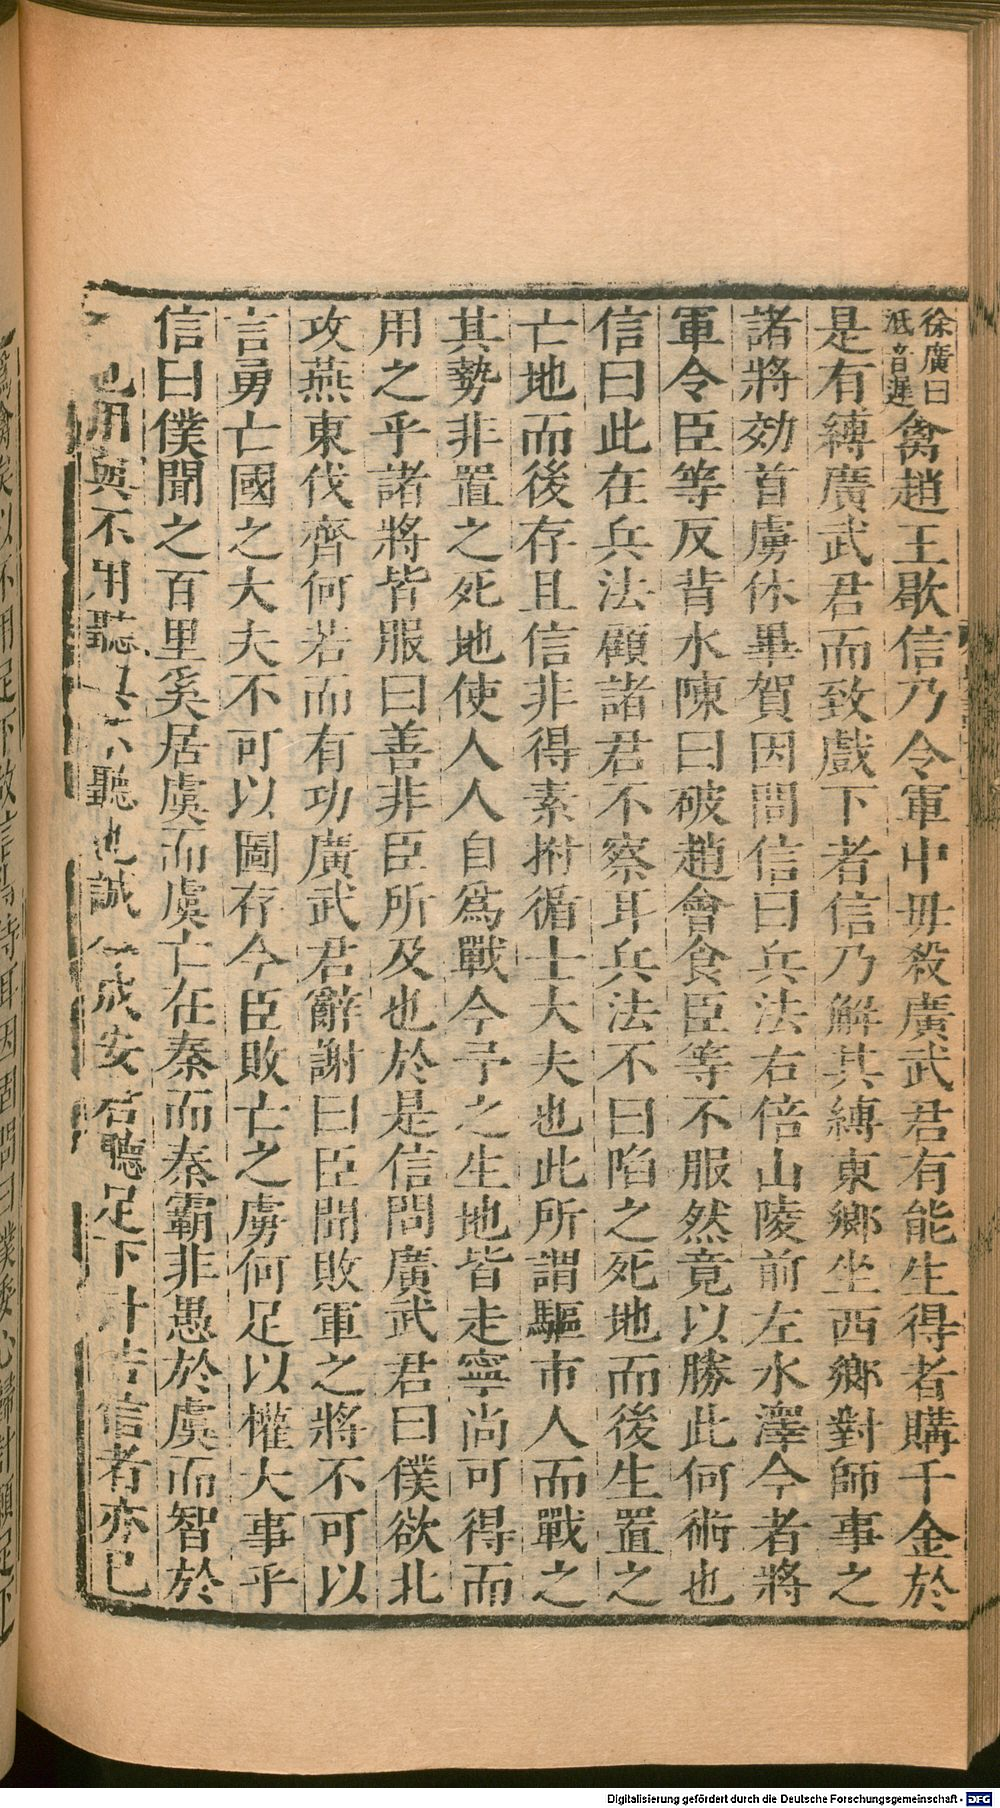 徐廣曰
泜音遲
禽趙王歇信乃令軍中毋殺廣武君有能生得者購千金於
是有縛廣武君而致戲下者信乃解其縛東鄉坐西鄉對師事之
諸將効首虜休畢賀因問信曰兵法右倍山陵前左水澤今者將
軍令臣等反背水陳曰破趙會食臣等不服然竟以勝此何術也
信曰此在兵法顧諸君不察耳兵法不曰陷之死地而後生置之
亡地而後存且信非得素拊循士大夫也此所謂驅市人而戰之
其勢非置之死地使人人自為戰今予之生地皆走寧尚可得而
用之乎諸將皆服曰善非臣所及也於是信問廣武君曰僕欲北
攻燕東伐齊何若而有功廣武君辭謝曰臣聞敗軍之將不可以
言勇亡國之大夫不可以圖存今臣敗亡之虜何足以權大事乎
信曰僕聞之百里奚居虞而虞亡在秦而秦霸非愚於虞而智於
也用與不用聽與不聽也誠令成安君聽足下計若信者亦已
為禽矣以不用足下故信得侍耳因固問曰僕委心歸計願足下
Digitalisierung gefördert durch die Deutsche Forschungsgemeinschaft - DFG